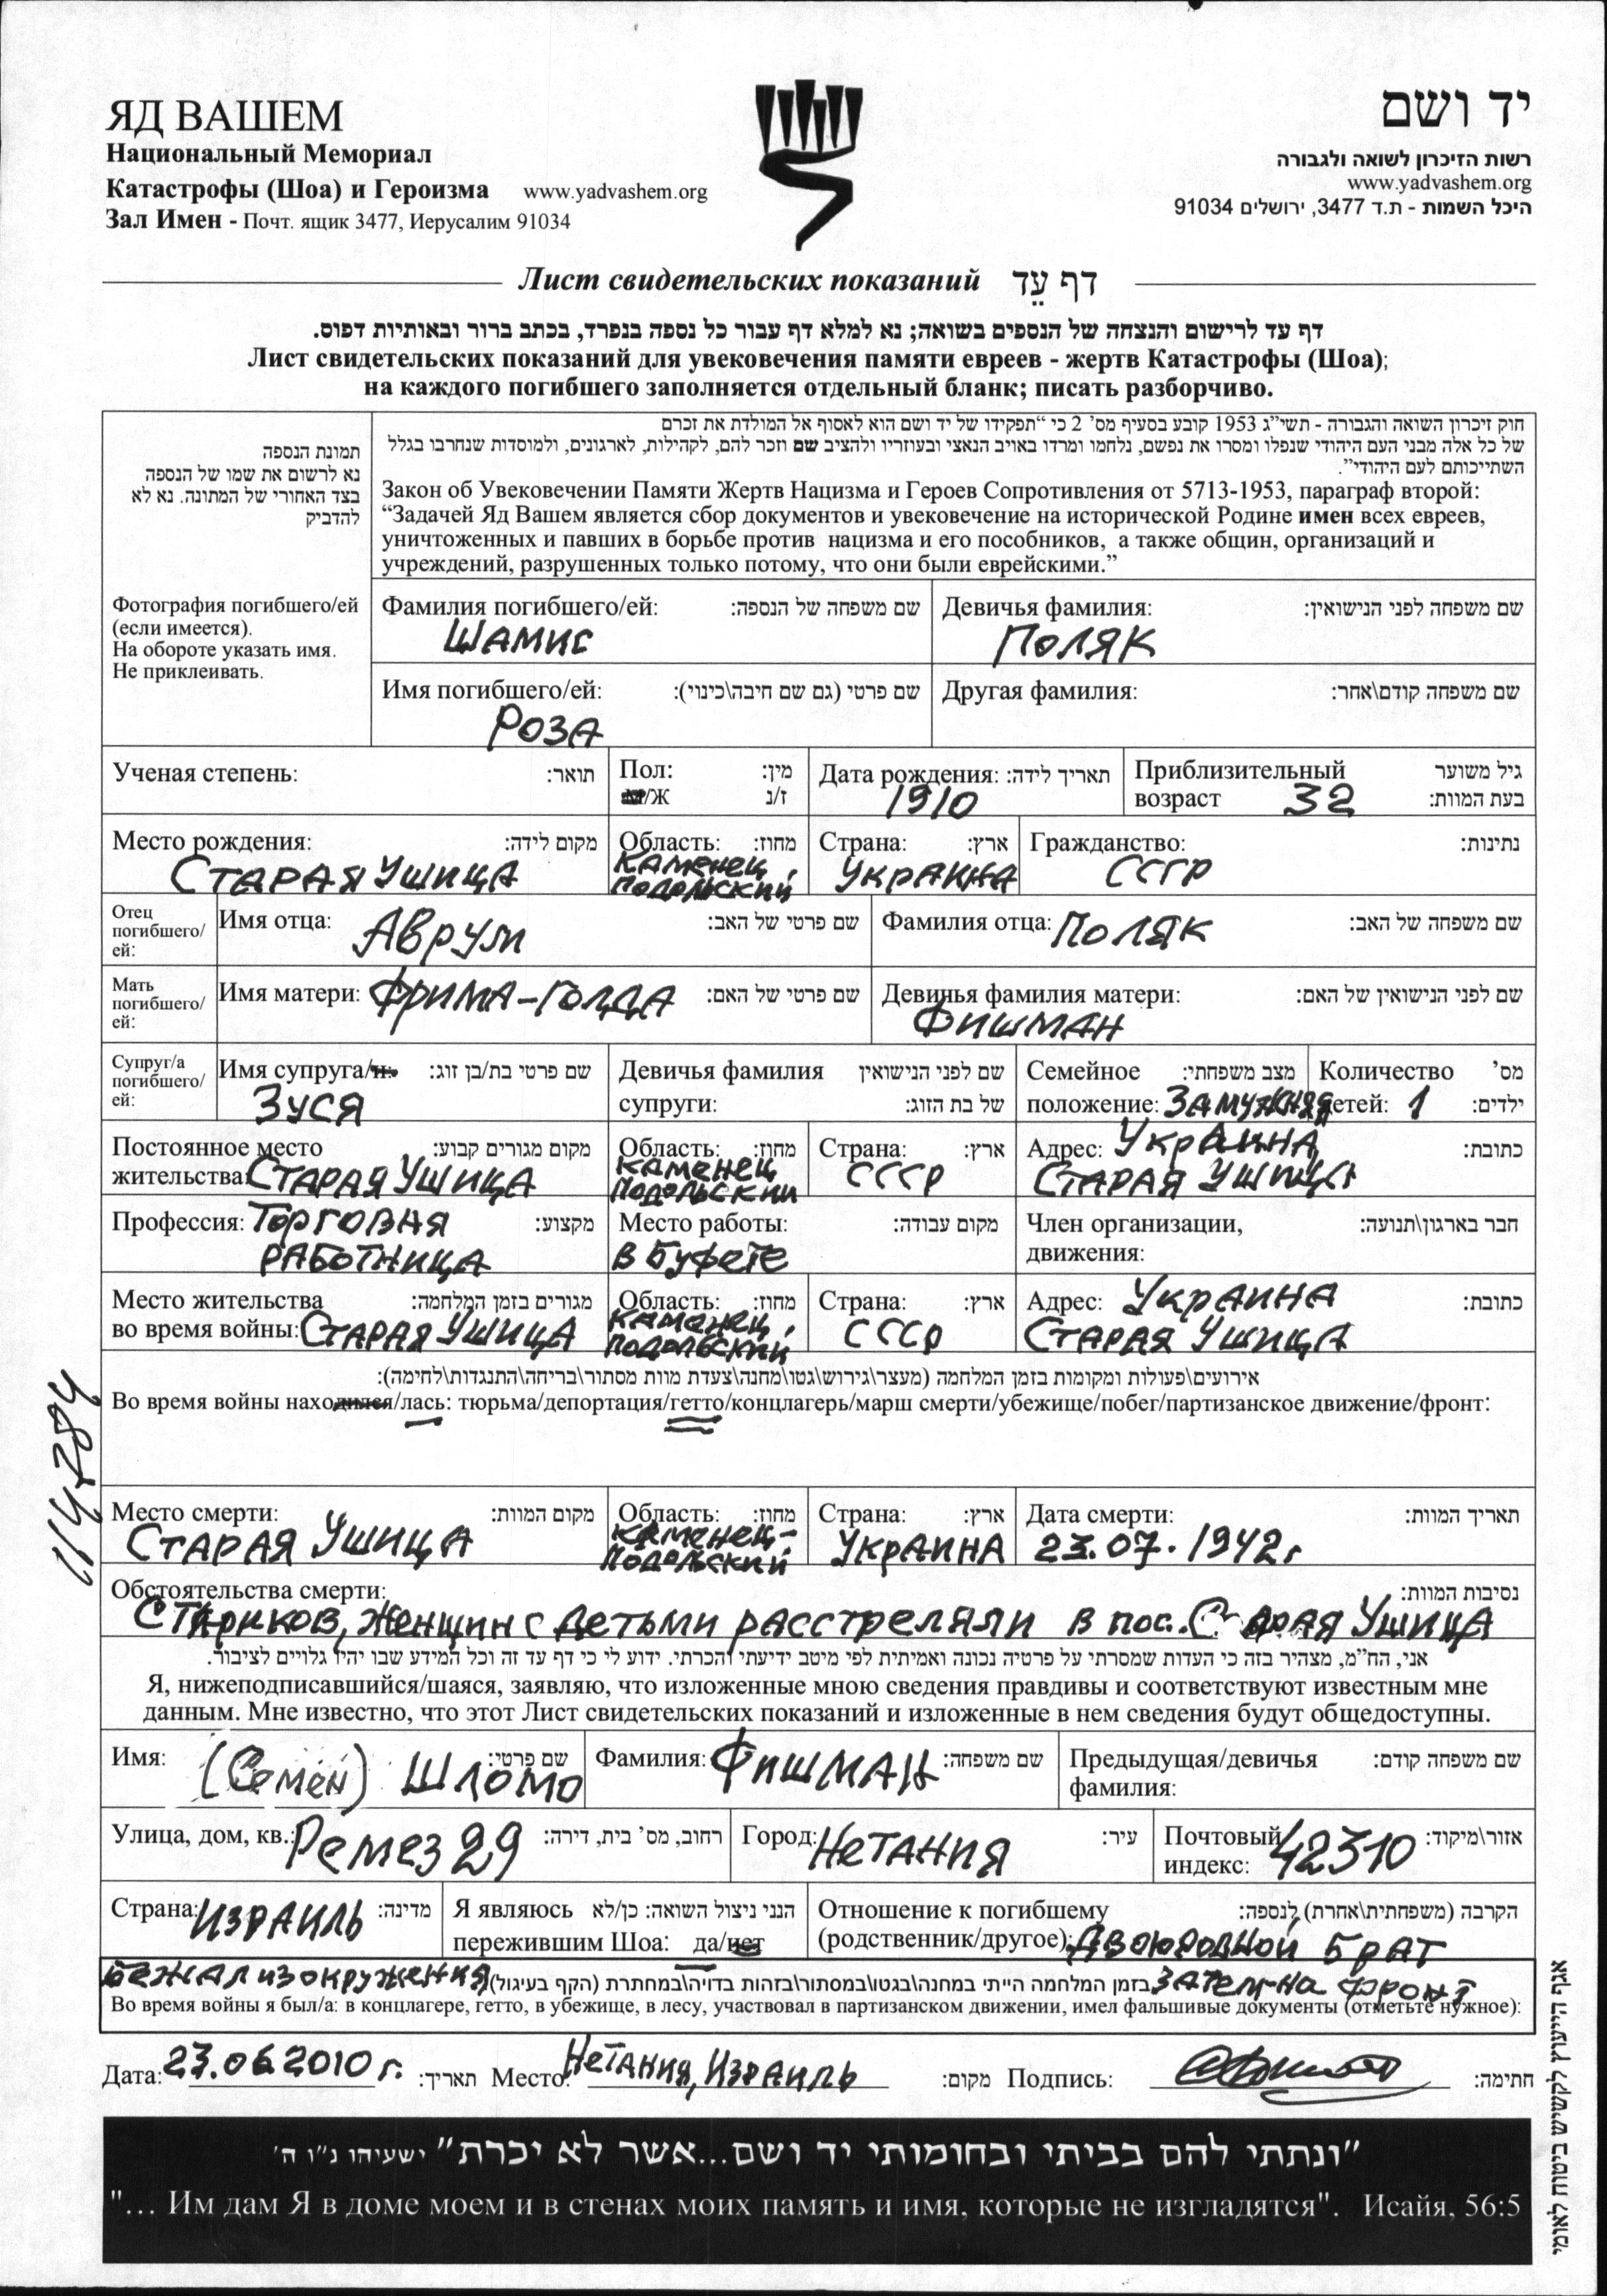 ЯД ВАШЕМ
Национальный Мемориал
Катастрофы (Шоа) и Героизма www.yadvashem.org
Зал Имен - Почт. ящик 3477, Иерусалим 91034
יד ושם
רשות הזיכרון לשואה ולגבורה
www.yadvashem.org
היכל השמות - ת.ד 3477, ירושלים 91034
Лист свидетельских показаний דף עֵד
דף עד לרישום והנצחה של הנספים בשואה; נא למלא דף עבור כל נספה בנפרד, בכתב ברור ובאותיות דפוס.
Лист свидетельских показаний для увековечения памяти евреев - жертв Катастрофы (Шоа);
на каждого погибшего заполняется отдельный бланк; писать разборчиво.
תמונת הנספה
נא לרשום את שמו של הנספה
בצד האחורי של המתונה. נא לא
להדביק
Фотография погибшего/ей
(если имеется).
На обороте указать имя.
Не приклеивать.
חוק זיכרון השואה והגבורה - תשי"ג 1953 קובע בסעיף מס' 2 כי "תפקידו של יד ושם הוא לאסוף אל המולדת את זכרם
של כל אלה מבני העם היהודי שנפלו ומסרו את נפשם, נלחמו ומרדו באויב הנאצי ובעוזריו ולהציב שם וזכר להם, לקהילות, לארגונים, ולמוסדות שנחרבו בגלל
השתייכותם לעם היהודי".
Закон об Увековечении Памяти Жертв Нацизма и Героев Сопротивления от 5713-1953, параграф второй:
“Задачей Яд Вашем является сбор документов и увековечение на исторической Родине имен всех евреев,
уничтоженных и павших в борьбе против нацизма и его пособников, а также общин, организаций и
учреждений, разрушенных только потому, что они были еврейскими.”
Фамилия погибшего/ей: שם משפחה של הנספה:
Шамис
Девичья фамилия: שם משפחה לפני הנישואין:
Поляк
Имя погибшего/ей: שם פרטי (גם שם חיבה\כינוי):
Роза
Другая фамилия: שם משפחה קודם\אחר:
Ученая степень: תואר:
Пол: מין:
М/Ж ז/נ
Дата рождения: תאריך לידה:
1910
Приблизительный גיל משוער
возраст 32 בעת המוות:
Место рождения: מקום לידה:
Старая Ушица
Область: מחוז:
Каменец
Подольский
Страна: ארץ:
Украина
Гражданство: נתינות:
СССР
Отец
погибшего/
ей:
Имя отца: Аврум שם פרטי של האב:
Фамилия отца: Поляк שם משפחה של האב:
Мать
погибшего/
ей:
Имя матери: Фрима-Голда שם פרטי של האם:
Девичья фамилия матери: שם לפני הנישואין של האם:
Фишман
Супруг/а
погибшего/
ей:
Имя супруга/и: שם פרטי בת/בן זוג:
Зуся
Девичья фамилия שם לפני הנישואין
супруги: של בת הזוג:
Семейное מצב משפחתי:
положение: Замужняя
Количество מס'
детей: 1 ילדים:
Постоянное место מקום מגורים קבוע:
жительства: Старая Ушица
Область: מחוז:
Каменец
Подольский
Страна: ארץ:
СССР
Адрес: Украина כתובת:
Старая Ушица
Профессия: Торговая מקצוע:
работница
Место работы: מקום עבודה:
в буфете
Член организации, חבר בארגון\תנועה:
движения:
Место жительства מגורים בזמן המלחמה:
во время войны: Старая Ушица
Область: מחוז:
Каменец
Подольский
Страна: ארץ:
СССР
Адрес: Украина כתובת:
Старая Ушица
אירועים\פעולות ומקומות בזמן המלחמה (מעצר\גירוש\גטו\מחנה\צעדת מוות מסתור\בריחה\התנגדות\לחימה):
Во время войны находился/лась: тюрьма/депортация/гетто/концлагерь/марш смерти/убежище/побег/партизанское движение/фронт:
Место смерти: מקום המוות:
Старая Ушица
Область: מחוז:
Каменец-
Подольский
Страна: ארץ:
Украина
Дата смерти: תאריך המוות:
23.07.1942г
Обстоятельства смерти: נסיבות המוות:
Стариков, женщин с детьми расстреляли в пос. Старая Ушица
אני, הח"מ, מצהיר בזה כי העדות שמסרתי על פרטיה נכונה ואמיתית לפי מיטב ידיעתי והכרתי. ידוע לי כי דף עד זה וכל המידע שבו יהיו גלויים לציבור.
Я, нижеподписавшийся/шаяся, заявляю, что изложенные мною сведения правдивы и соответствуют известным мне
данным. Мне известно, что этот Лист свидетельских показаний и изложенные в нем сведения будут общедоступны.
Имя: (Семён) Шломо שם פרטי:
Фамилия: Фишман שם משפחה:
Предыдущая/девичья שם משפחה קודם:
фамилия:
Улица, дом, кв.: Ремез 29 רחוב, מס' בית, דירה:
Город: Нетания עיר:
Почтовый אזור\מיקוד:
индекс: 42310
Страна: Израиль מדינה:
Я являюсь הנני ניצול השואה: כן/לא
пережившим Шоа: да/нет
Отношение к погибшему הקרבה (משפחתית\אחרת) לנספה:
(родственник/другое): Двоюродной брат
Бежал из окружения, בזמן המלחמה הייתי במחנה\בגטו\במסתור\בזהות בדויה\במחתרת (הקף בעיגול) затем-на фронт
Во время войны я был/а: в концлагере, гетто, в убежище, в лесу, участвовал в партизанском движении, имел фальшивые документы (отметьте нужное):
Дата: 23.06 2010 г. תאריך: Место: Нетания, Израиль מקום: Подпись: חתימה:
"ונתתי להם בביתי ובחומותי יד ושם...אשר לא יכרת" ישעיהו נ"ו ה'
"... Им дам Я в доме моем и в стенах моих память и имя, которые не изгладятся". Исайя, 56:5
114284
אגף הייעוץ לקשיש ביטוח לאומי